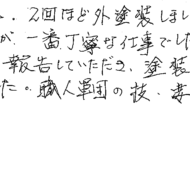 . 2回ほど外塗装しまし
が、一番丁寧な仕事でした
報告していただき、塗装
た。職人軍団の技、